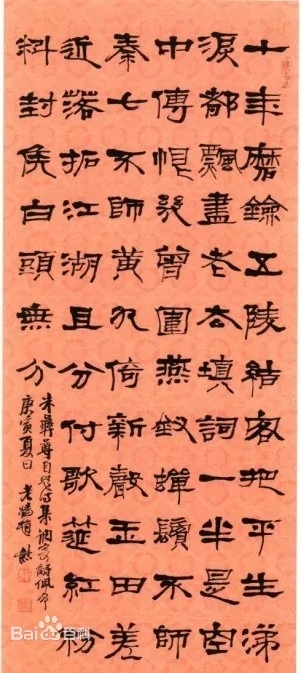 十年磨劍五陵結客把平生涕
淚都飄盡老去填詞一半是空
中傳恨幾曾圍燕釵蟬鬢不師
秦七不師黃九倚新聲玉田差
近落拓江湖且分付歌筵紅粉
料封侯白頭無分
朱彝尊自題詞集調寄解佩令
庚寅夏日
Bai百科